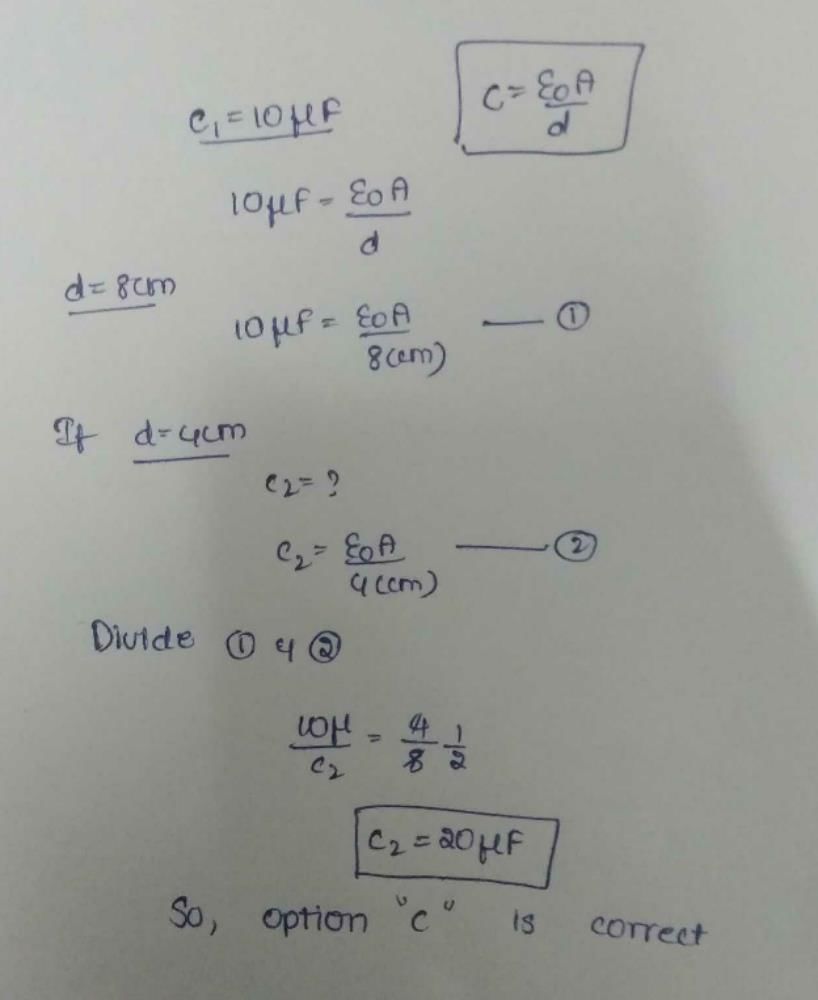 C₁ = 10 μF
C = ε₀A / d
10 μF = ε₀A / d
d = 8cm
10 μF = ε₀A / 8(cm) — ①
If d = 4cm
C₂ = ?
C₂ = ε₀A / 4(cm) — ②
Divide ① & ②
10μ / C₂ = 4/8 1/2
C₂ = 20 μF
So, option "C" is correct